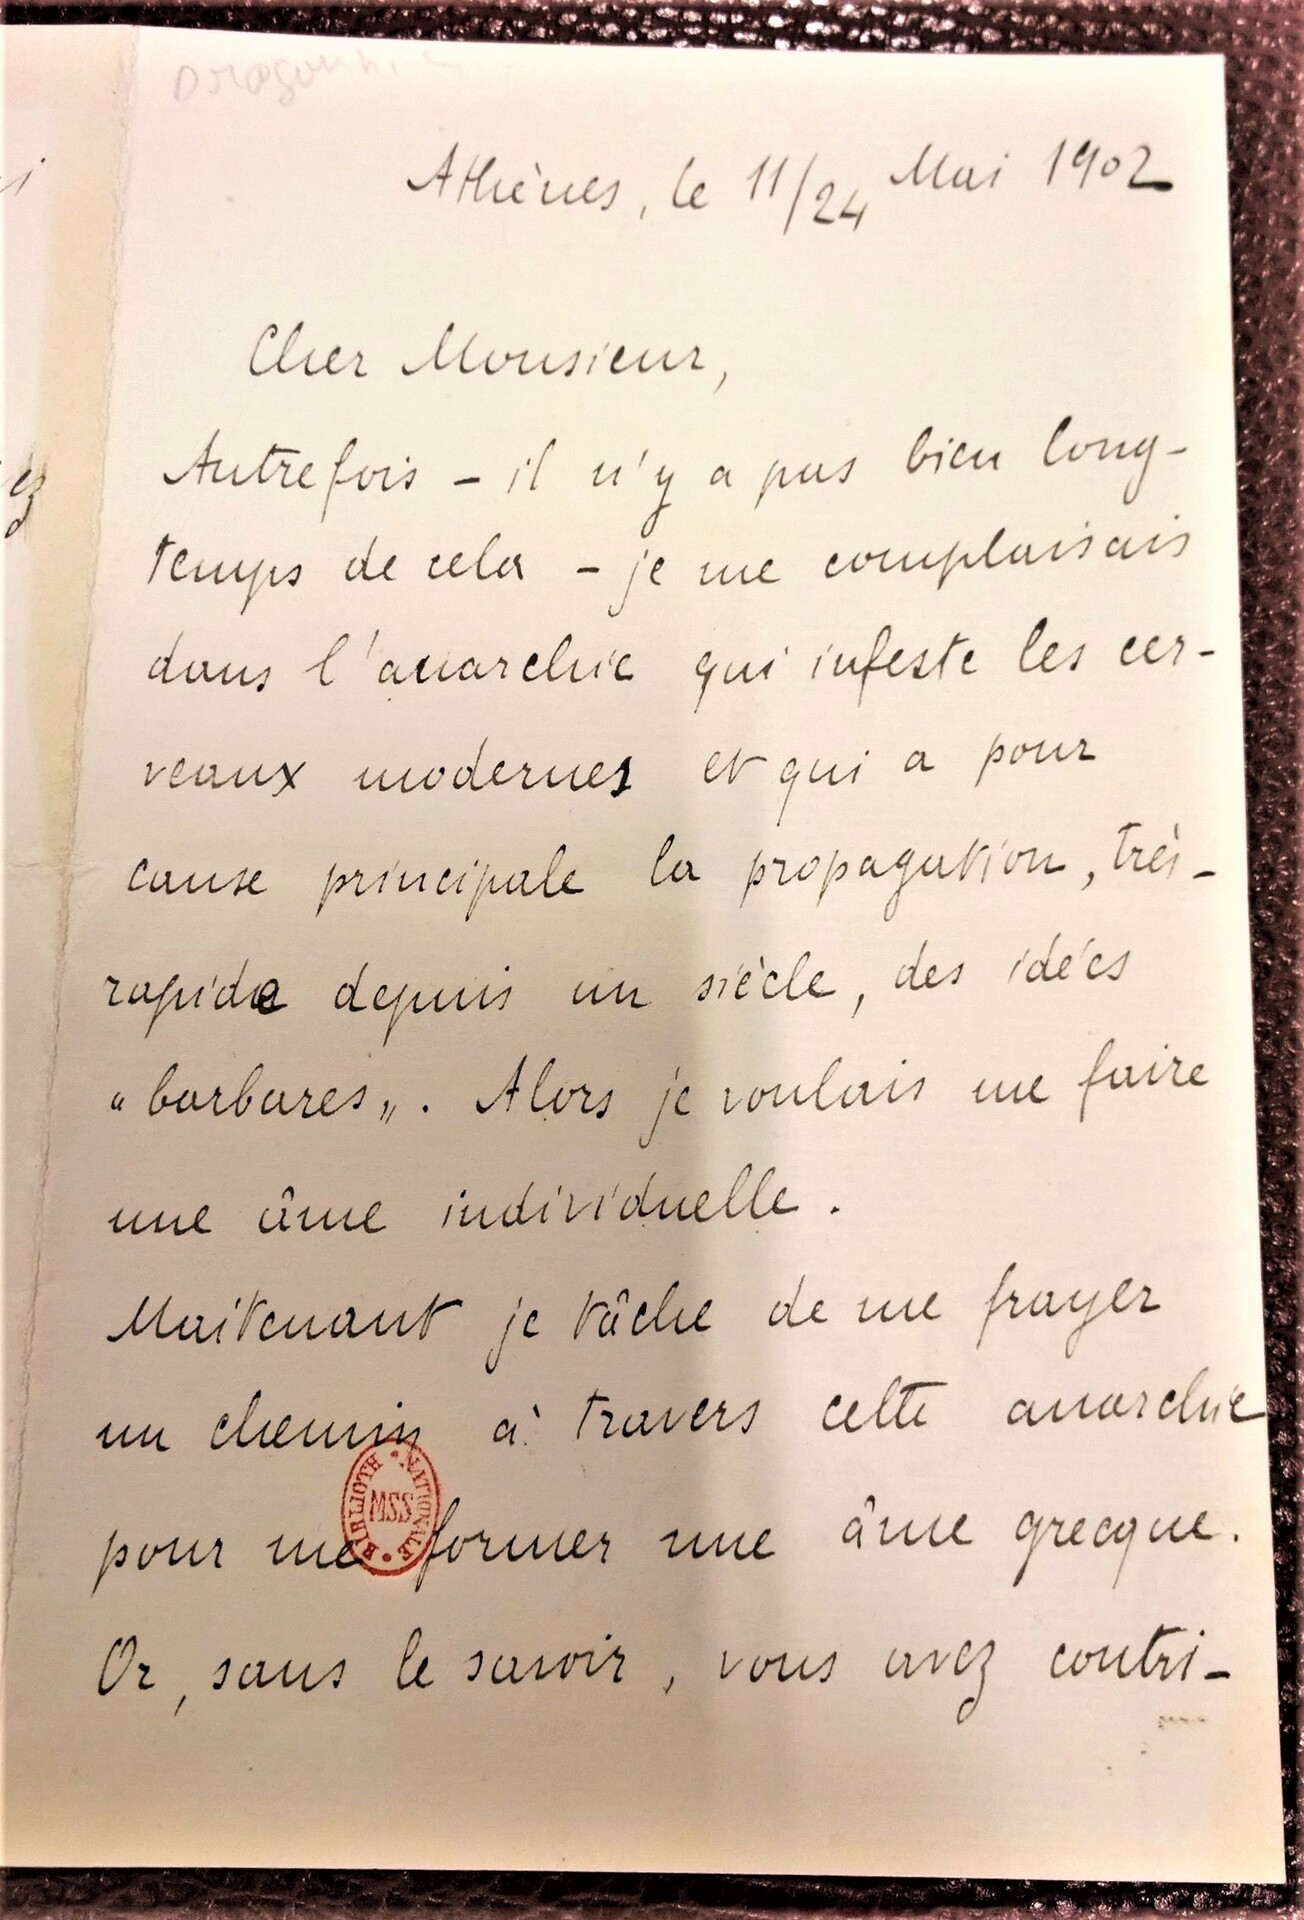 Athènes, le 11/24 Mai 1902
Cher Monsieur,
Autrefois – il n'y a pas bien long-
temps de cela – je me complaisais
dans l'anarchie qui infeste les cer-
veaux modernes et qui a pour
cause principale la propagation, très-
rapide depuis un siècle, des idées
"barbares„. Alors je voulais me faire
une âme individuelle.
Maitenant je tâche de me frayer
un chemin à travers cette anarchie
pour me former une âme grecque.
Or, sans le savoir, vous avez contri-
BIBLIOTH. NATIONALE
MSS